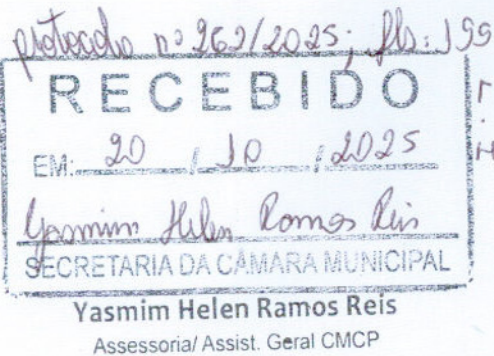 protocolo nº 262/2025; fls: 199
RECEBIDO
EM: 20 / 10 / 2025
Yasmim Helen Ramos Reis
SECRETARIA DA CÂMARA MUNICIPAL
Yasmim Helen Ramos Reis
Assessoria/ Assist. Geral CMCP